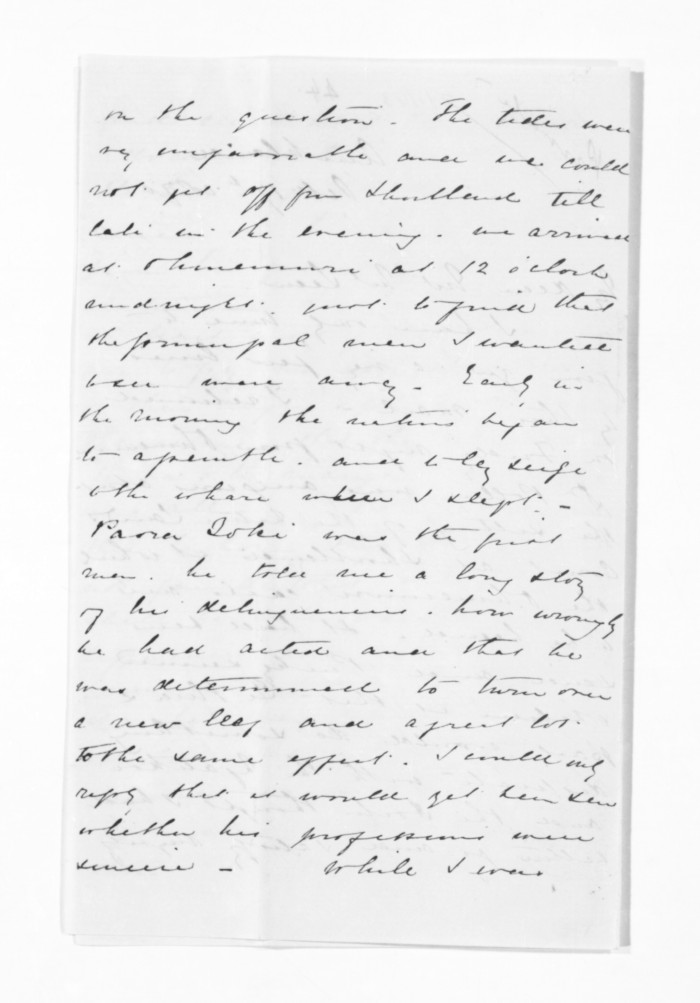 on the question. The tides were
very unfavorable and we could
not get off from Shortland till
late in the evening. we arrived
at Ohinemuri at 12 o'clock
midnight. just to find that
the principal men I wanted
to see were away. Early in
the morning the natives began
to assemble. and to lay seige
to the whare where I slept. -
Paora Toki was the first
man. he told me a long story
of his delinquencies. how wrongly
he had acted and that he
was determined to turn over
a new leaf and a great lot
to the same effect. I could only
reply that it would yet be seen
whether his professions were
sincere - While I was